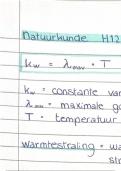 Natuurkunde H12
kw = λmax · T
kw = constante var
λmax = maximale go
T = temperatuur
warmtestraling = wa
str